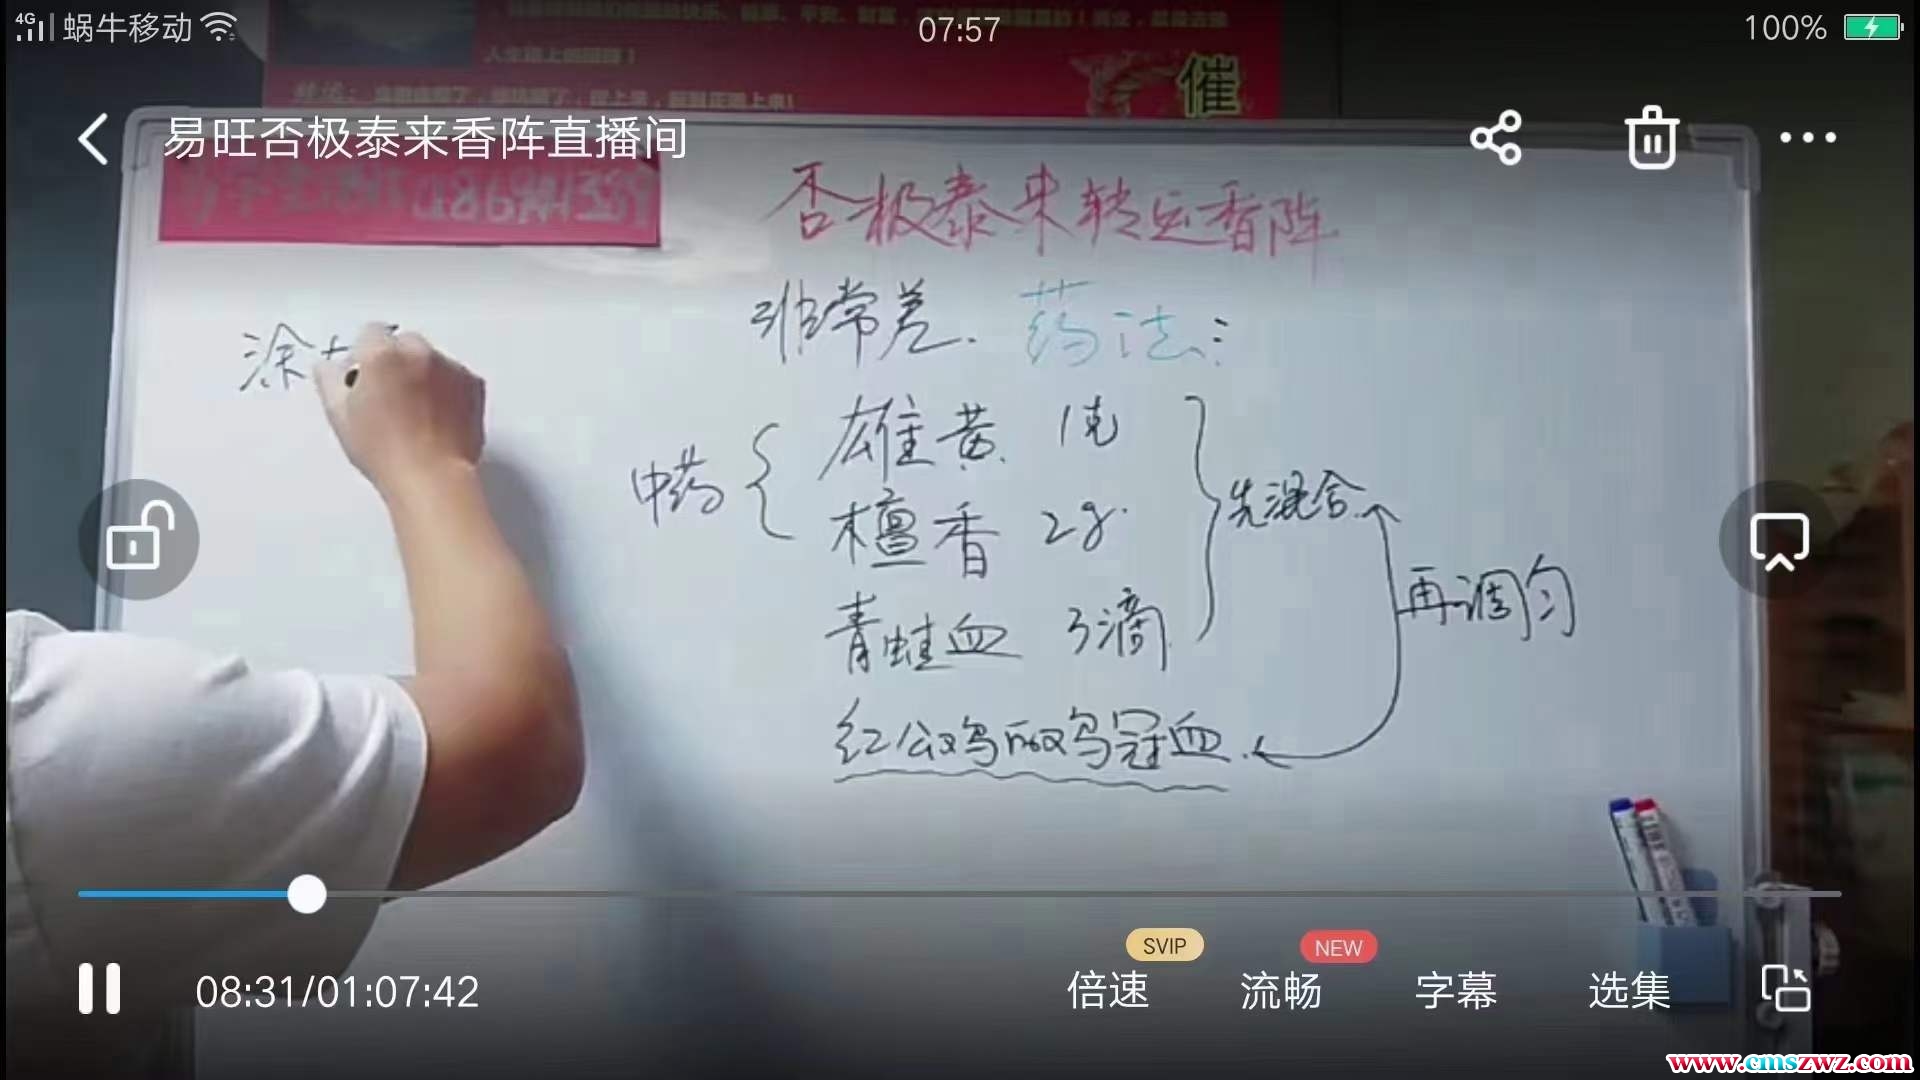 4G 蜗牛移动 07:57 100%
人生路上的回报！
催
易旺否极泰来香阵直播间
否极泰来转运香阵
非常差. 药法:
涂
中药 { 雄黄 1克
檀香 2g.
青蛙血 3滴
} 先混合
再调匀
红公鸡的鸡冠血.
08:31/01:07:42
SVIP
NEW
倍速 流畅 字幕 选集
www.cmszwz.com